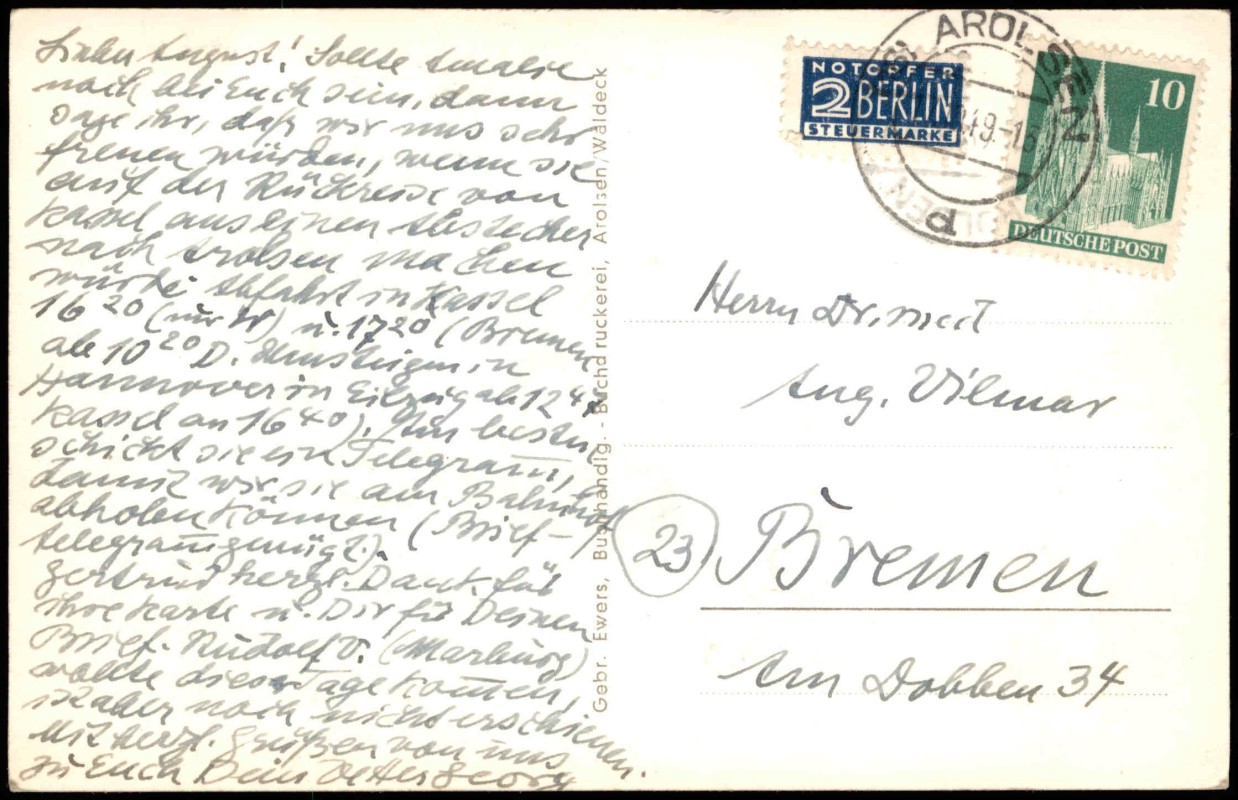 Lieber August! Sollte Amalie
noch bei Euch sein, dann
sage ihr, daß wir uns sehr
freuen würden, wenn sie
auf der Rückreise von
Kassel aus einen Abstecher
nach Arolsen machen
würde. Abfahrt in Kassel
16 20 (nur W) u. 17 20 (Bremen
ab 10 20 D. Umsteigen in
Hannover in Eilzug ab 12 47
Kassel an 16 40). Am besten
schickt sie ein Telegram̄,
damit wir sie am Bahnhof
abholen können (Brief-
telegram̄ genügt).
Gertrud herzl. Dank für
ihre Karte u. Dir für Deinen
Brief. Rudolf V. (Marburg)
wollte dieser Tage kom̄en,
ist aber noch nicht erschienen.
Mit herzl. Grüßen von uns
zu Euch Dein Vetter Georg
Gebr. Ewers, Buchhandlg. - Buchdruckerei, Arolsen/Waldeck
NOTOPFER
2 BERLIN
STEUERMARKE
AROLSEN
49-15
10
DEUTSCHE POST
Herrn Dr. med
Aug. Vilmar
23 Bremen
Am Dobben 34